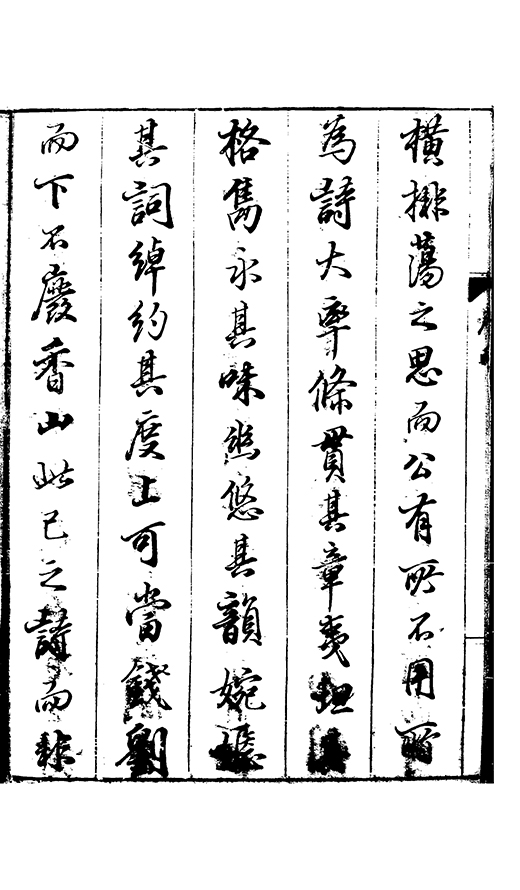 橫排蕩之思而公有所不用所
為詩大率條貫其章夷坦其
格雋永其味悠其韻婉
其詞綽約其度上可當錢劉
而下不廢香山此己之詩而非